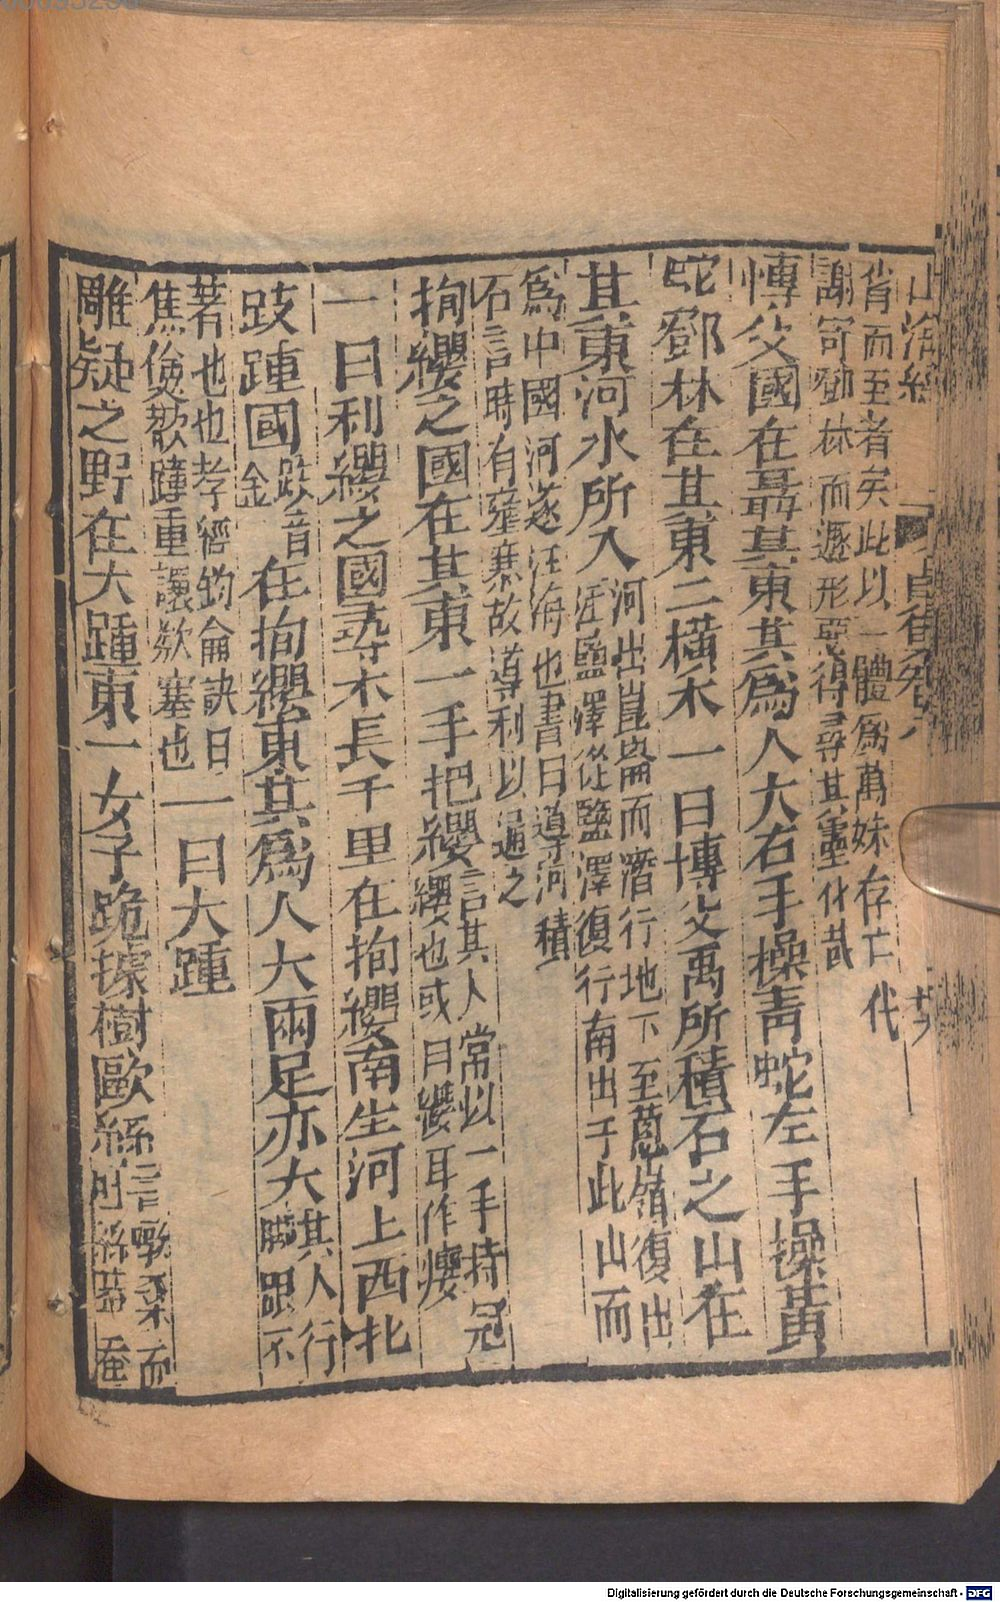 山海經
省而至者矣此以一體爲萬姝存亡代
謝寄鄧林而遯形惡得尋其靈化哉
博父國在聶其東其爲人大右手操青蛇左手操黃
蛇鄧林在其東二橫木一曰博父禹所積石之山在
其東河水所入
河出崑崙而潛行地下至蔥嶺復出
注鹽澤從鹽澤復行南出于此山而
爲中國河遂注海也書曰導河積
石言時有壅塞故導利以通之
拘纓之國在其東一手把纓
言其人常以一手持冠
纓也或曰纓耳作癭
一曰利纓之國尋木長千里在拘纓南生河上西北
跂踵國
跂音
企
在拘纓東其爲人大兩足亦大
其人行
腳跟不
著也也孝經鉤侖訣曰
焦僥歕踵重譯欵塞也
一曰大踵
雕疑之野在大踵東一女子跪據樹歐絲
言噉桑而
吐絲葢
Digitalisierung gefördert durch die Deutsche Forschungsgemeinschaft - DFG